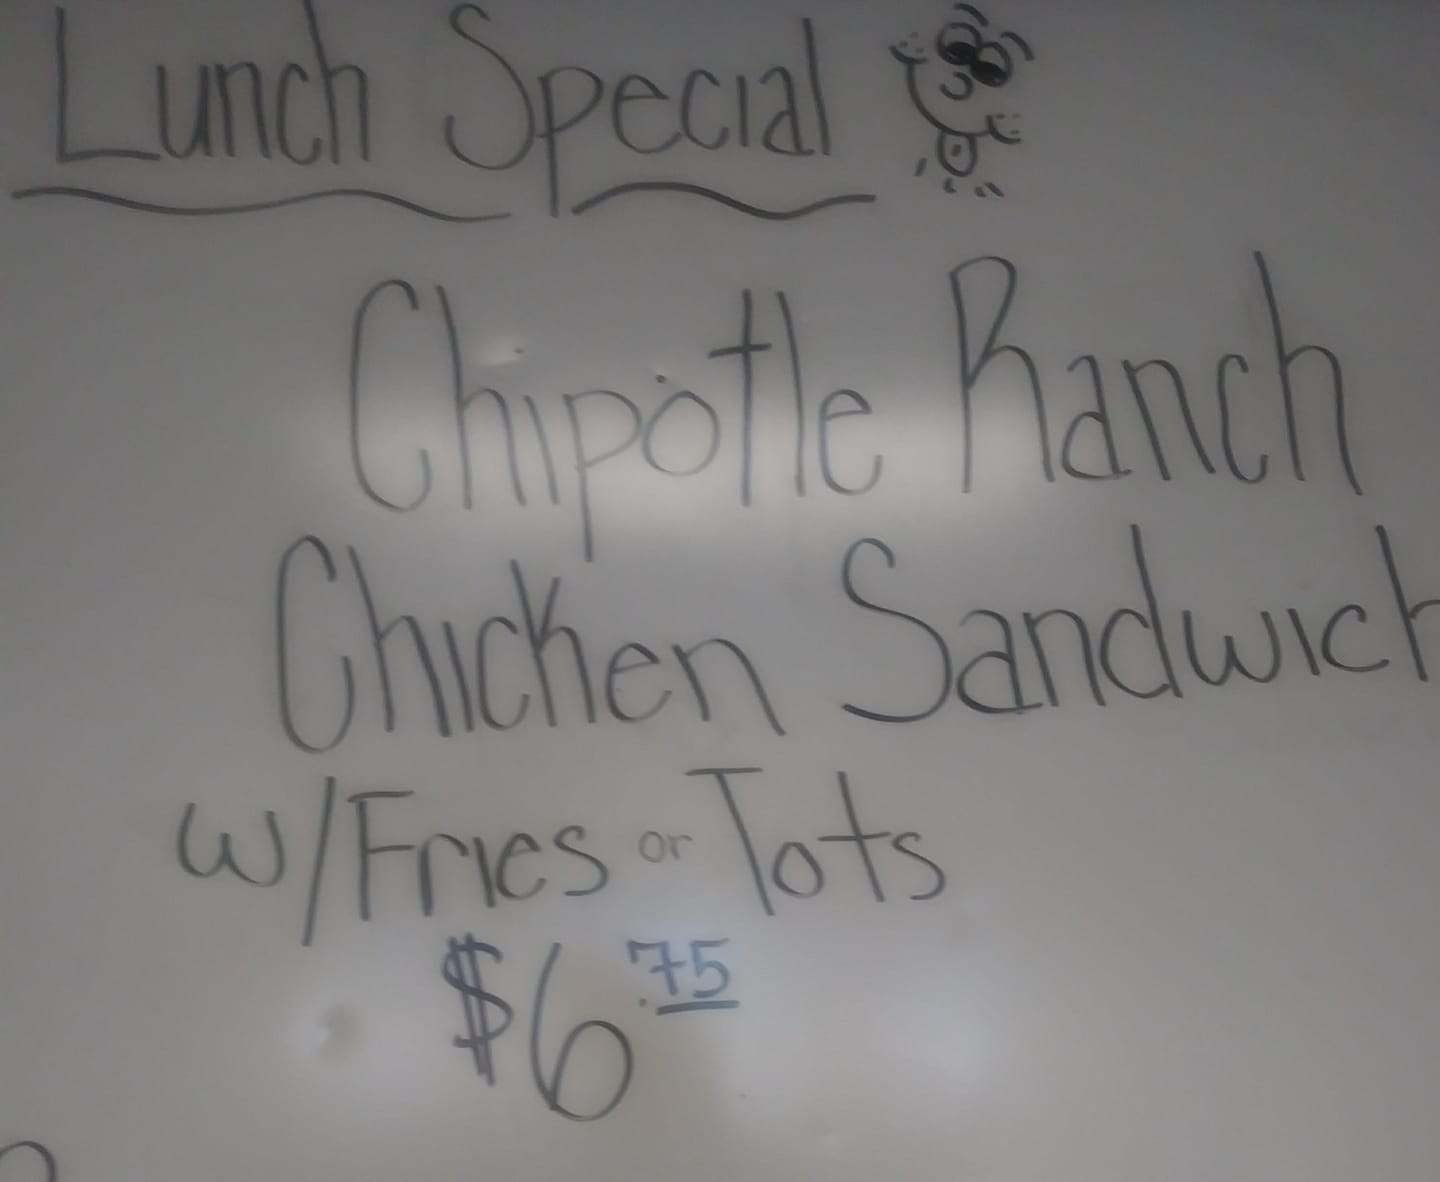 Lunch Special
Chipotle Ranch
Chicken Sandwich
w/Fries or Tots
$6.75